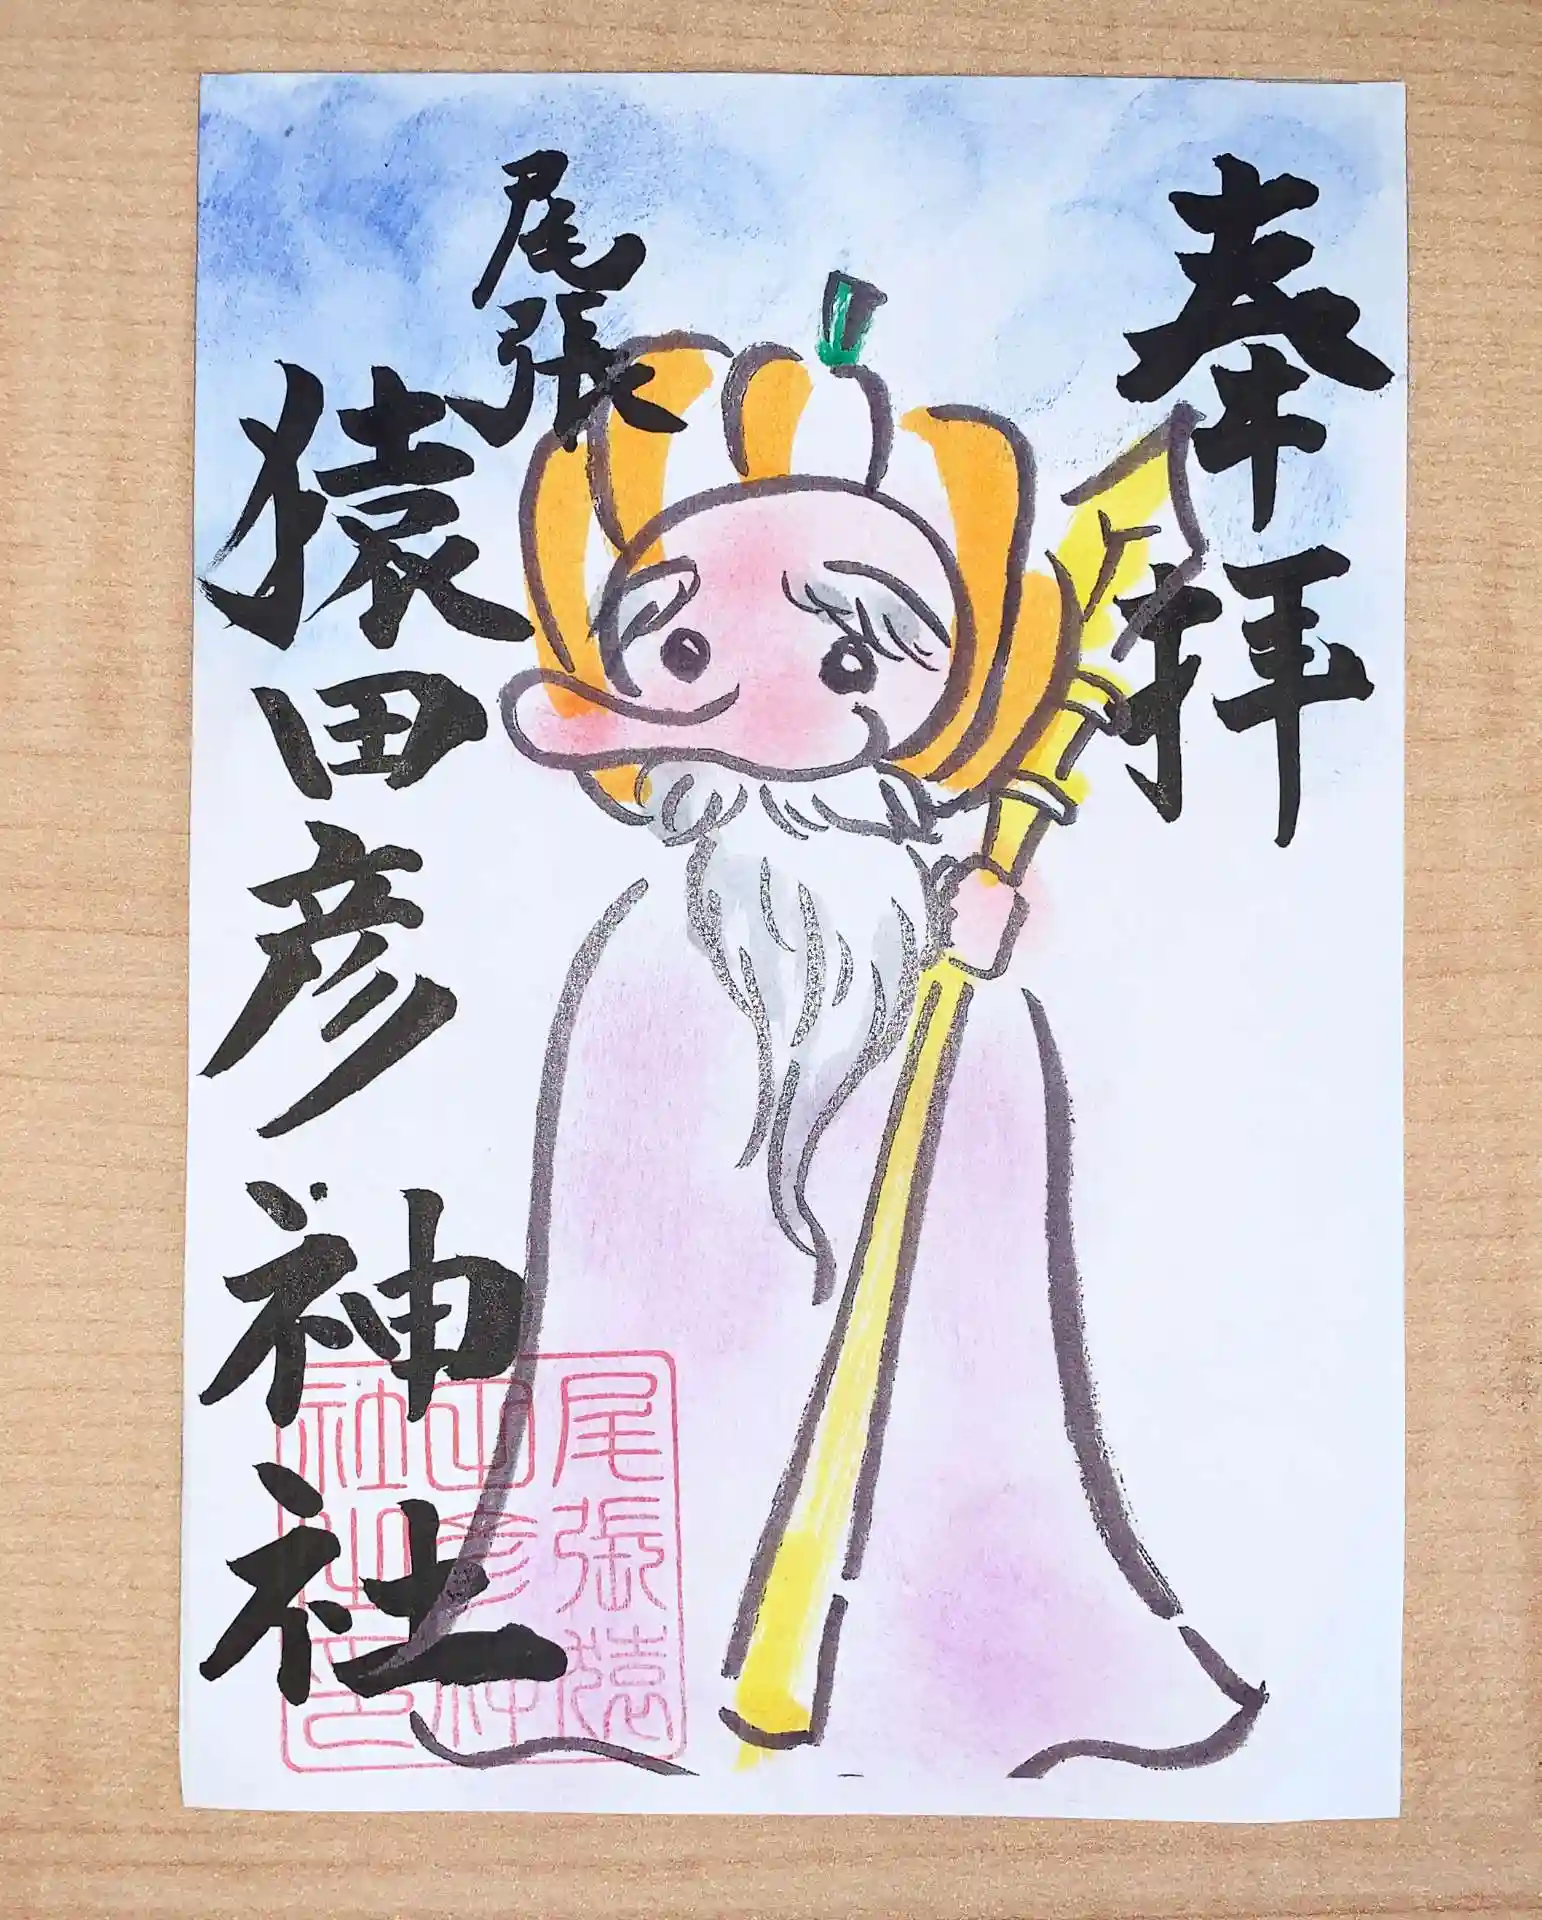 奉拝
尾張
猿田彦神社
尾張猿
田彦神
社之印